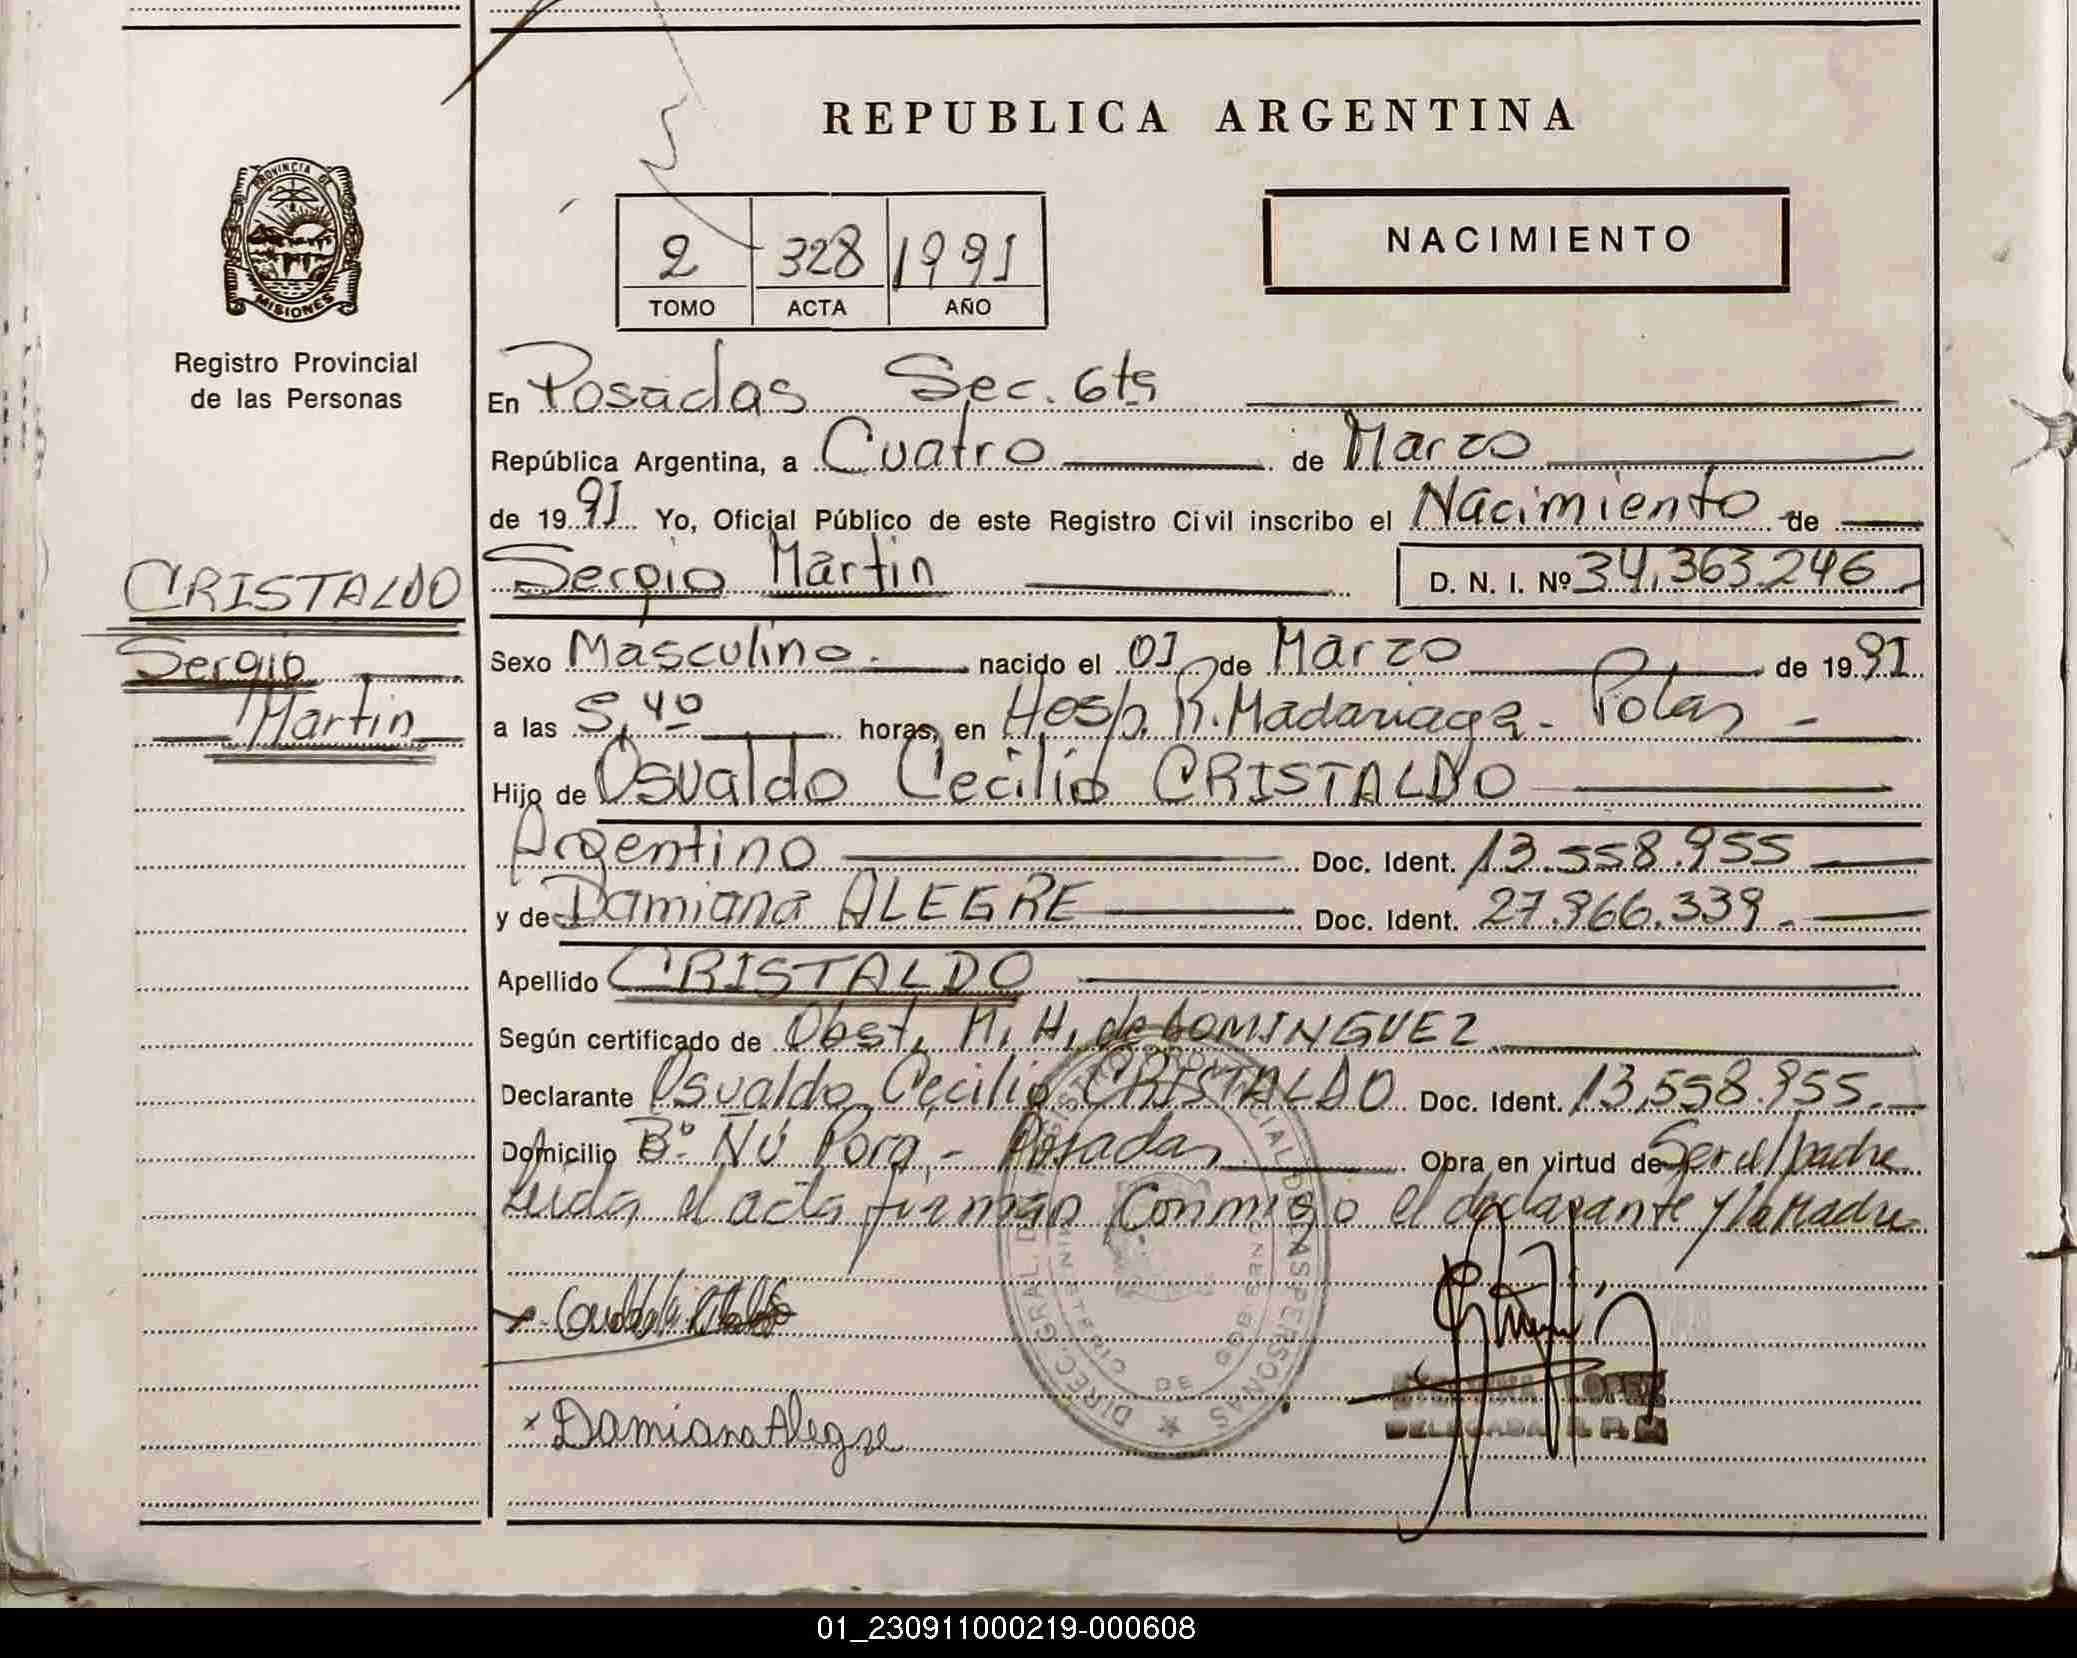 REPUBLICA ARGENTINA
PROVINCIA DE
MISIONES
Registro Provincial
de las Personas
NACIMIENTO
2 328 1991
TOMO ACTA AÑO
En Posadas Sec. 6ta
República Argentina, a Cuatro de Marzo
de 1991 Yo, Oficial Público de este Registro Civil inscribo el Nacimiento de
Sergio Martin D. N. I. Nº 34.363.246
CRISTALDO
Sergio
Martin
Sexo Masculino. nacido el 01 de Marzo de 1991
a las 5,40 horas, en Hosp. R. Madariaga - Pdas -
Hijo de Osvaldo Cecilio CRISTALDO
Argentino Doc. Ident. 13.558.955
y de Damiana ALEGRE Doc. Ident. 27.966.339.-
Apellido CRISTALDO
Según certificado de Obst. M. H. de DOMINGUEZ
Declarante Osvaldo Cecilio CRISTALDO Doc. Ident. 13,558.955.
Domicilio Bº. Ñú Pora - Posadas Obra en virtud de Ser el padre
Leida el acta firman conmigo el declarante y la Madre
DIREC. GRAL. DEL REGISTRO PROVINCIAL DE LAS PERSONAS
MINISTERIO DE GOB.
MISIONES
LOPEZ
DELEGADA R. P.
x Damiana Alegre
01_230911000219-000608